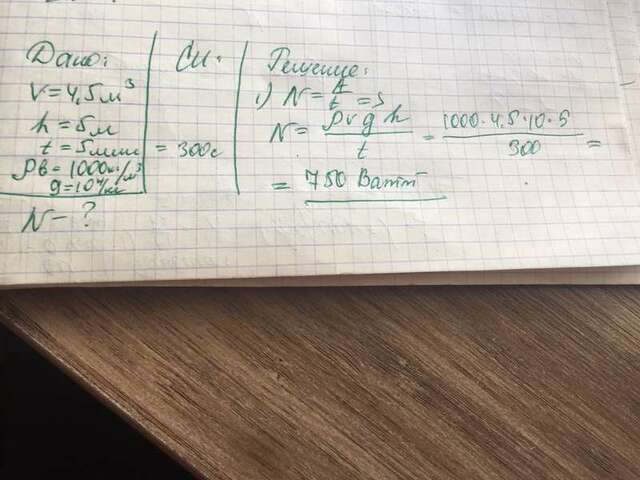 Дано:
V = 4,5 м³
h = 5 м
t = 5 мин
ρв = 1000 кг/м³
g = 10 Н/кг
N - ?
СИ:
= 300 с
Решение:
1) N = A/t =>
N = ρVgh/t = 1000·4,5·10·5/300 =
= 750 Ватт